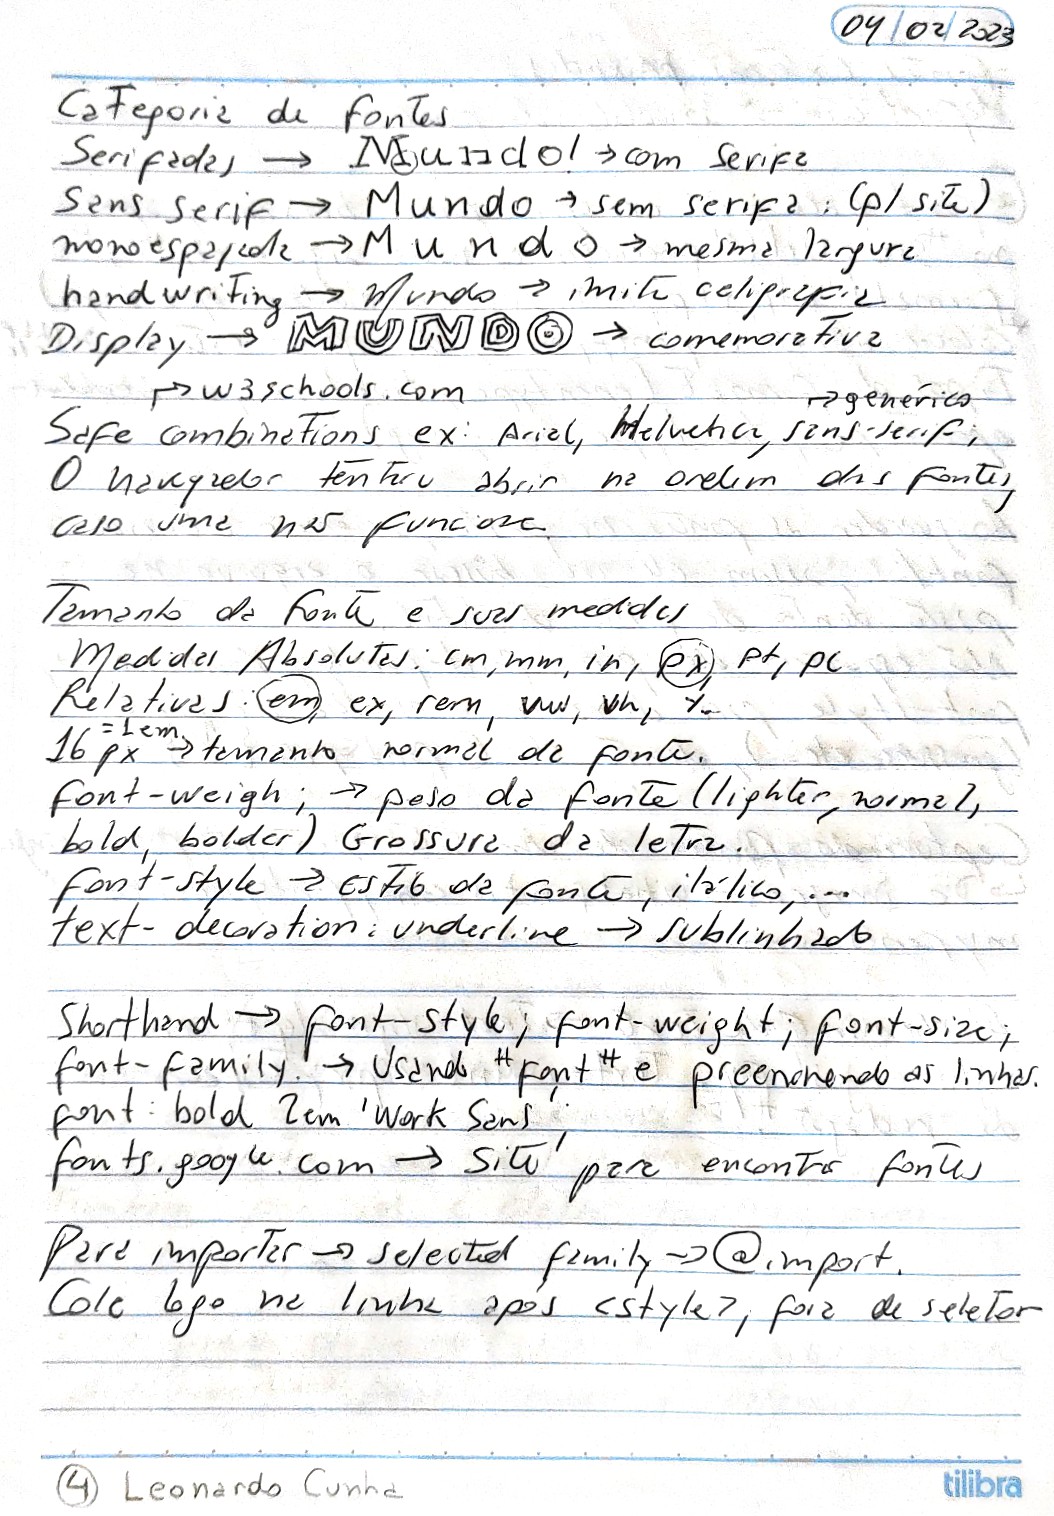 04/02/2023
Categoria de fontes
Serifadas → Mundo! → com serifa
Sans serif → Mundo → sem serifa. (p/ site)
monoespaçada → Mundo → mesma largura
handwriting → Mundo → imita caligrafia
Display → MUNDO → comemorativa
↱ w3schools.com
↱ genérico
Safe combinations ex: Arial, Helvetica, sans-serif;
O navegador tentou abrir na ordem das fontes,
caso uma não funciona
Tamanho da fonte e suas medidas
Medidas Absolutas: cm, mm, in, px, pt, pc
Relativas: em, ex, rem, vw, vh, %
=1em
16 px → tamanho normal da fonte.
font-weigh; → peso da fonte (lighter, normal,
bold, bolder) Grossura da letra.
font-style → Estilo da fonte, itálico, ...
text-decoration: underline → sublinhado
Shorthand → font-style; font-weight; font-size;
font-family. → Usando "font" e preenchendo as linhas.
font: bold 2em 'Work Sans';
fonts.google.com → Site para encontrar fontes
Para importar → selected family → @import.
Cole logo na linha após <style>, fora de seletor
4 Leonardo Cunha
tilibra